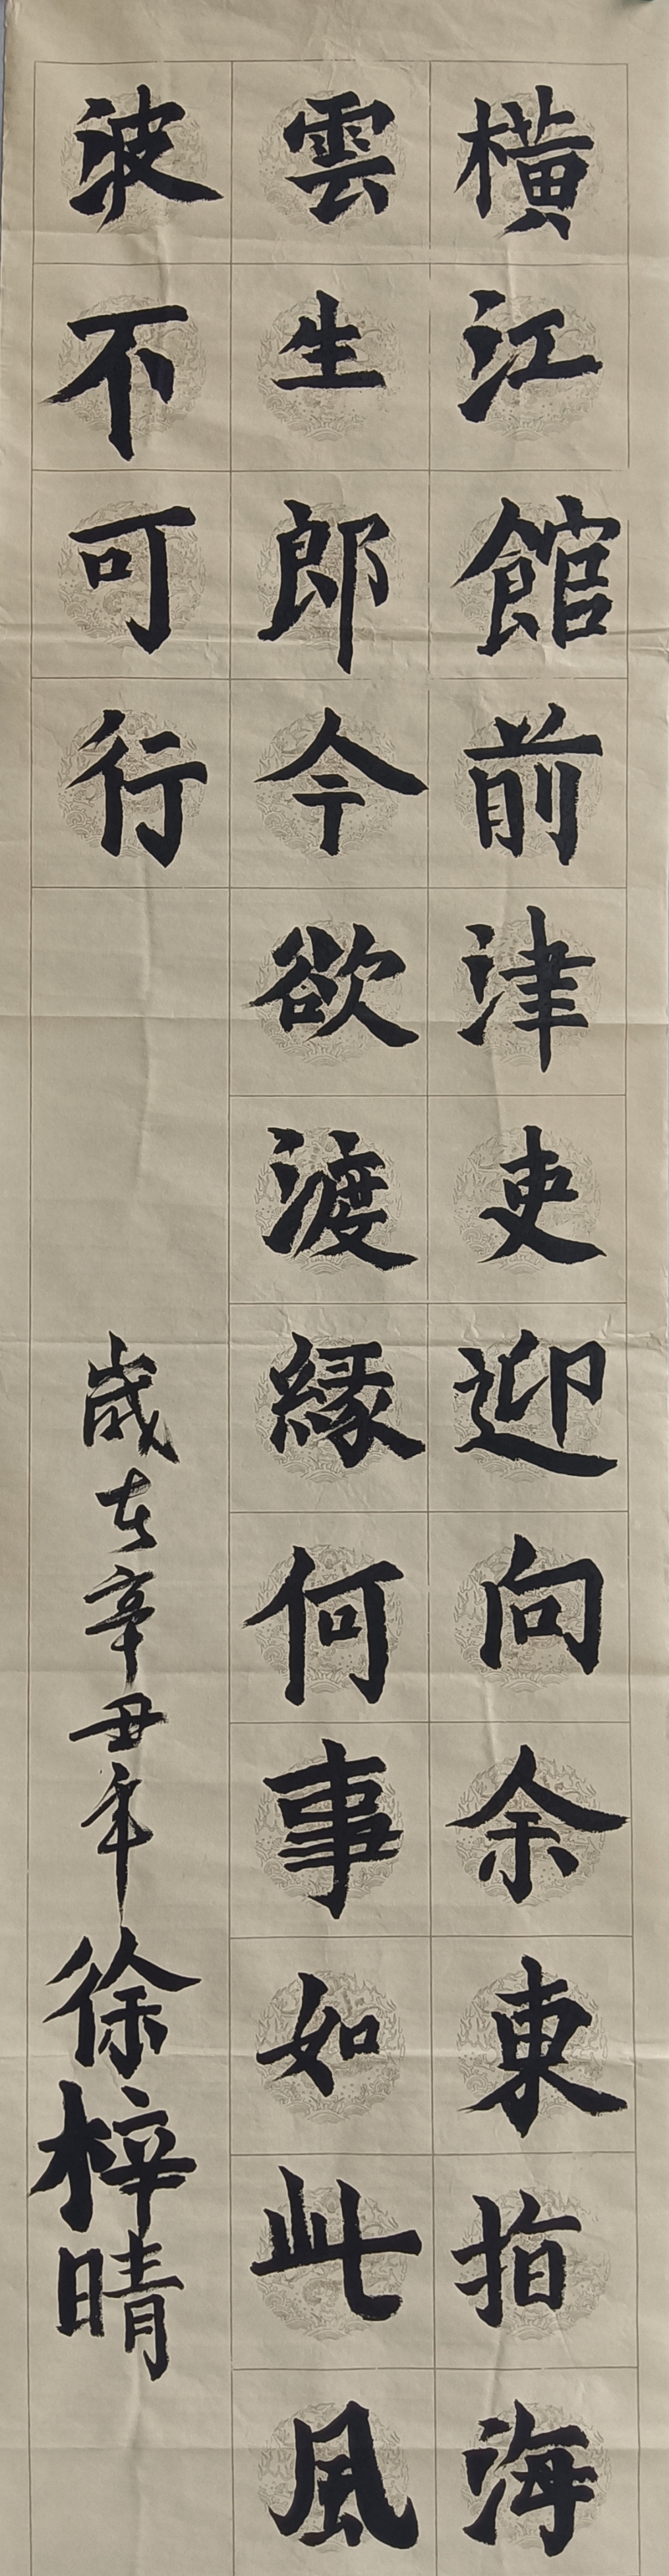 橫江館前津吏迎向余東指海
雲生郎今欲渡緣何事如此風
波不可行
歲在辛丑年徐梓晴